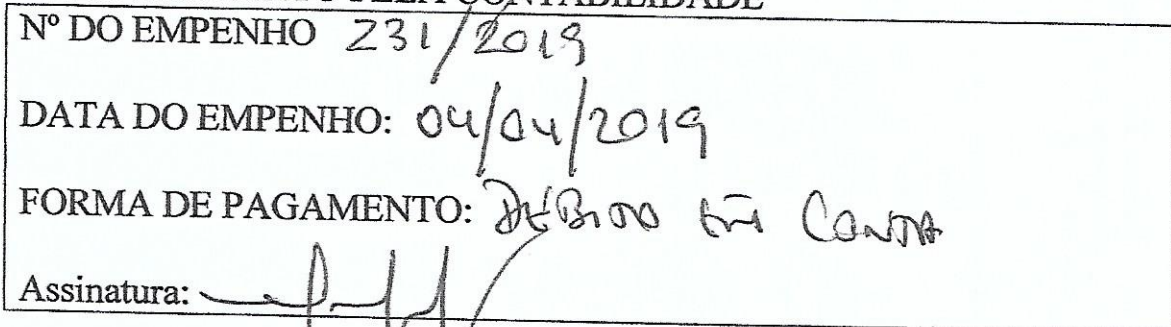 CONTABILIDADE
Nº DO EMPENHO 231/2019
DATA DO EMPENHO: 04/04/2019
FORMA DE PAGAMENTO: DÉBITO EM CONTA
Assinatura: